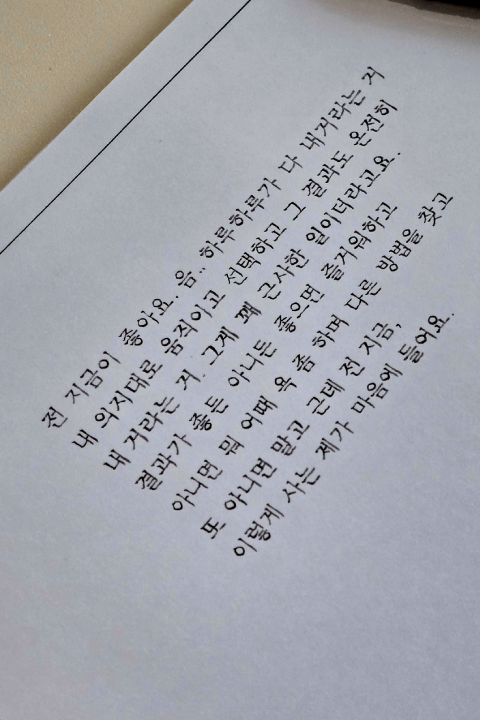 전 지금이 좋아요. 음.. 하루하루가 다 내거라는 거
내 의지대로 움직이고 선택하고 그 결과도 온전히
내 거라는 거. 그게 꽤 근사한 일이더라고요.
결과가 좋든 아니든 좋으면 즐거워하고
아니면 뭐 어때 욕 좀 하며 다른 방법을 찾고
또 아니면 말고 근데 전 지금,
이렇게 사는 제가 마음에 들어요.